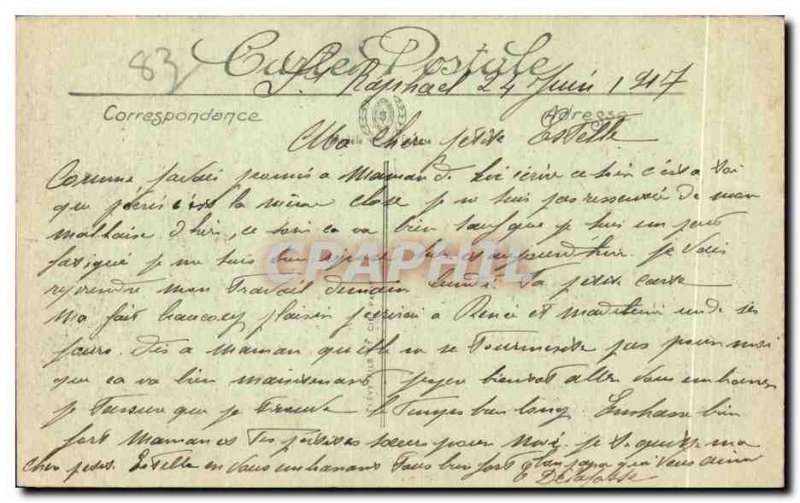 83
Carte Postale
St Raphael 24 Juin 1917
Correspondance
Adresse
Ma Cher petite Estelle
Comme javais promis a Maman de lui écrire ce soir c'est a toi
que j'écris c'est la même chose je me suis pas ressentie de mon
malhaise d'hier, ce soir ca va bien sauf que je suis un peu
fatigué je me suis bien reposé hier et aujourd'hui. Je vais
reprendre mon travail demain lundi Ta petite carte
Ma fait beaucoup plaisir j'ecrirai a Rence et Madeleine un de ses
jours. Dis a Maman quelle ne se tourmente pas pour moi
que ca va bien maintenant
je tassure que je trouve le temps bien long. Embrasse bien
fort Maman et tes petites soeurs pour moi. Je te quitte ma
cher petite Estelle en vous embrassant tous bien fort ton papa qui vous aime
CPAPHIL